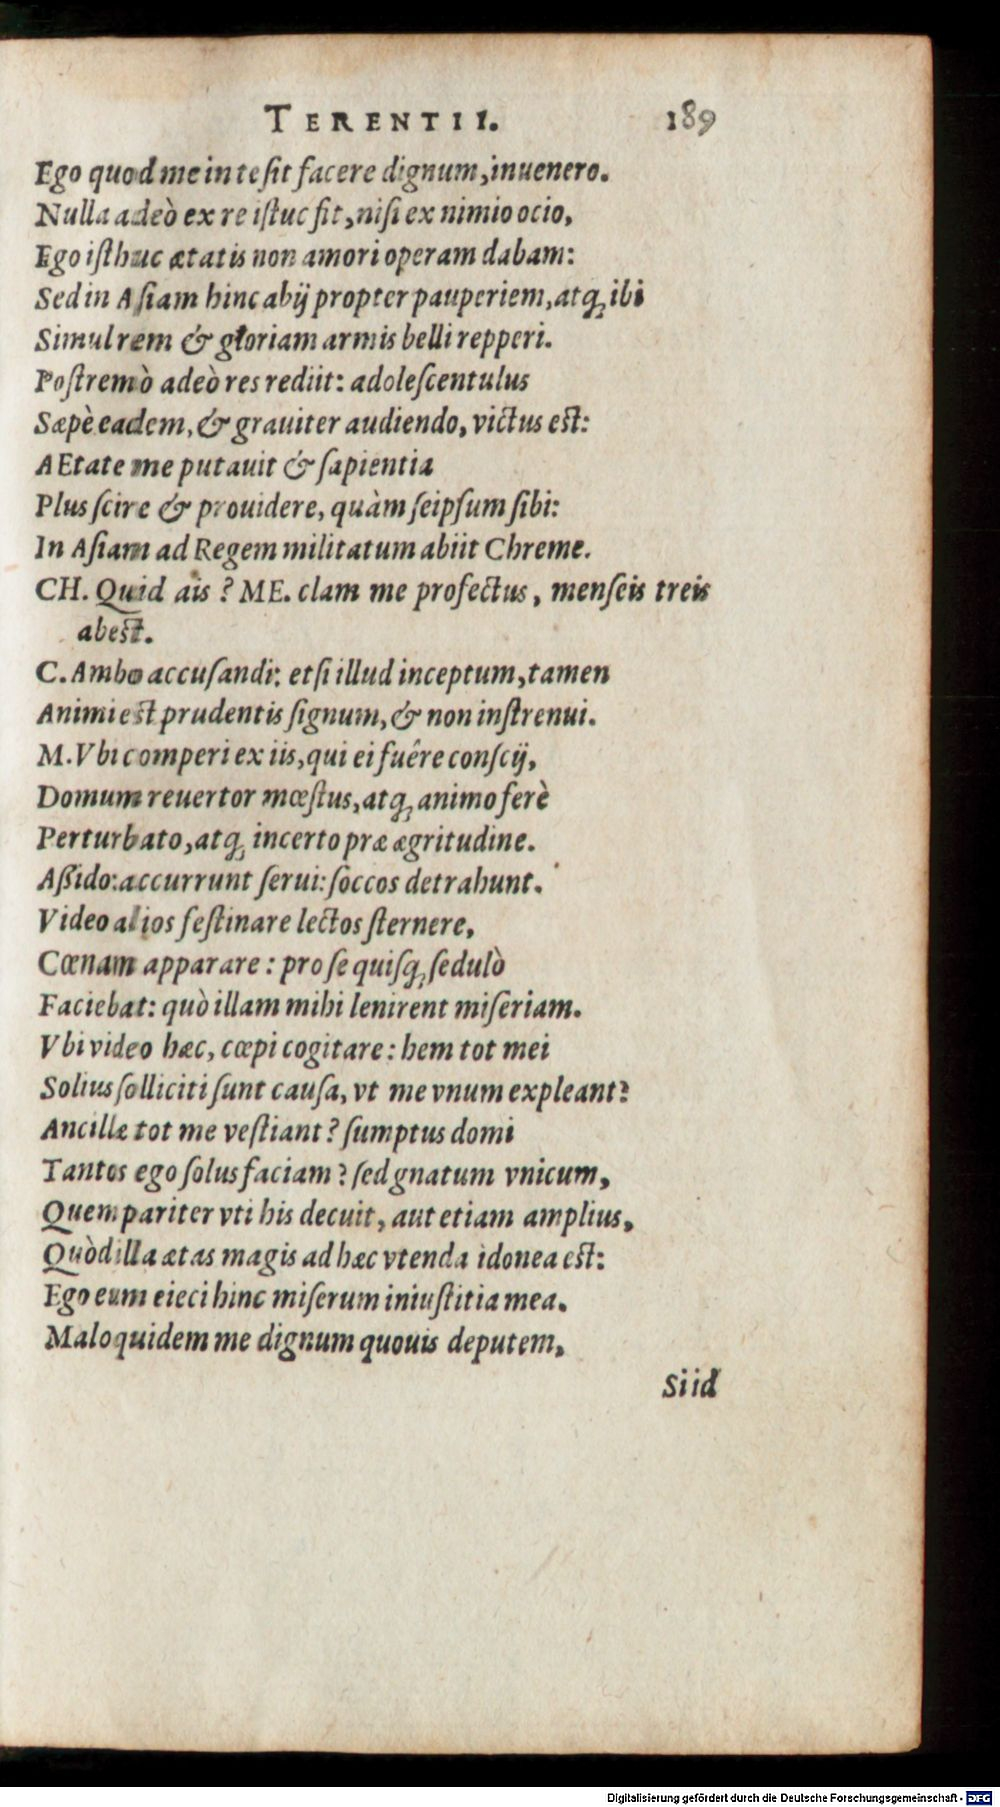 TERENTII. 189
Ego quod me in te ſit facere dignum, inuenero.
Nulla adeò ex re iſtuc fit, niſi ex nimio ocio,
Ego iſthuc ætatis non amori operam dabam:
Sed in Aſiam hinc abij propter pauperiem, atq; ibi
Simul rem & gloriam armis belli repperi.
Poſtremò adeò res rediit: adoleſcentulus
Sæpè eadem, & grauiter audiendo, victus eſt:
AEtate me putauit & ſapientia
Plus ſcire & prouidere, quàm ſeipſum ſibi:
In Aſiam ad Regem militatum abiit Chreme.
CH. Quid ais? ME. clam me profectus, menſeis treis
abeſt.
C. Ambo accuſandi: etſi illud inceptum, tamen
Animi eſt prudentis ſignum, & non inſtrenui.
M. Vbi comperi ex iis, qui ei fuêre conſcij,
Domum reuertor mœſtus, atq; animo ferè
Perturbato, atq; incerto præ ægritudine.
Aßido: accurrunt ſerui: ſoccos detrahunt.
Video alios feſtinare lectos ſternere,
Cœnam apparare: pro ſe quiſq; ſedulò
Faciebat: quò illam mihi lenirent miſeriam.
Vbi video hæc, cœpi cogitare: hem tot mei
Solius ſolliciti ſunt cauſa, vt me vnum expleant?
Ancillæ tot me veſtiant? ſumptus domi
Tantos ego ſolus faciam? ſed gnatum vnicum,
Quem pariter vti his decuit, aut etiam amplius,
Quòd illa ætas magis ad hæc vtenda idonea eſt:
Ego eum eieci hinc miſerum iniuſtitia mea.
Malo quidem me dignum quouis deputem,
Si id
Digitalisierung gefördert durch die Deutsche Forschungsgemeinschaft - DFG